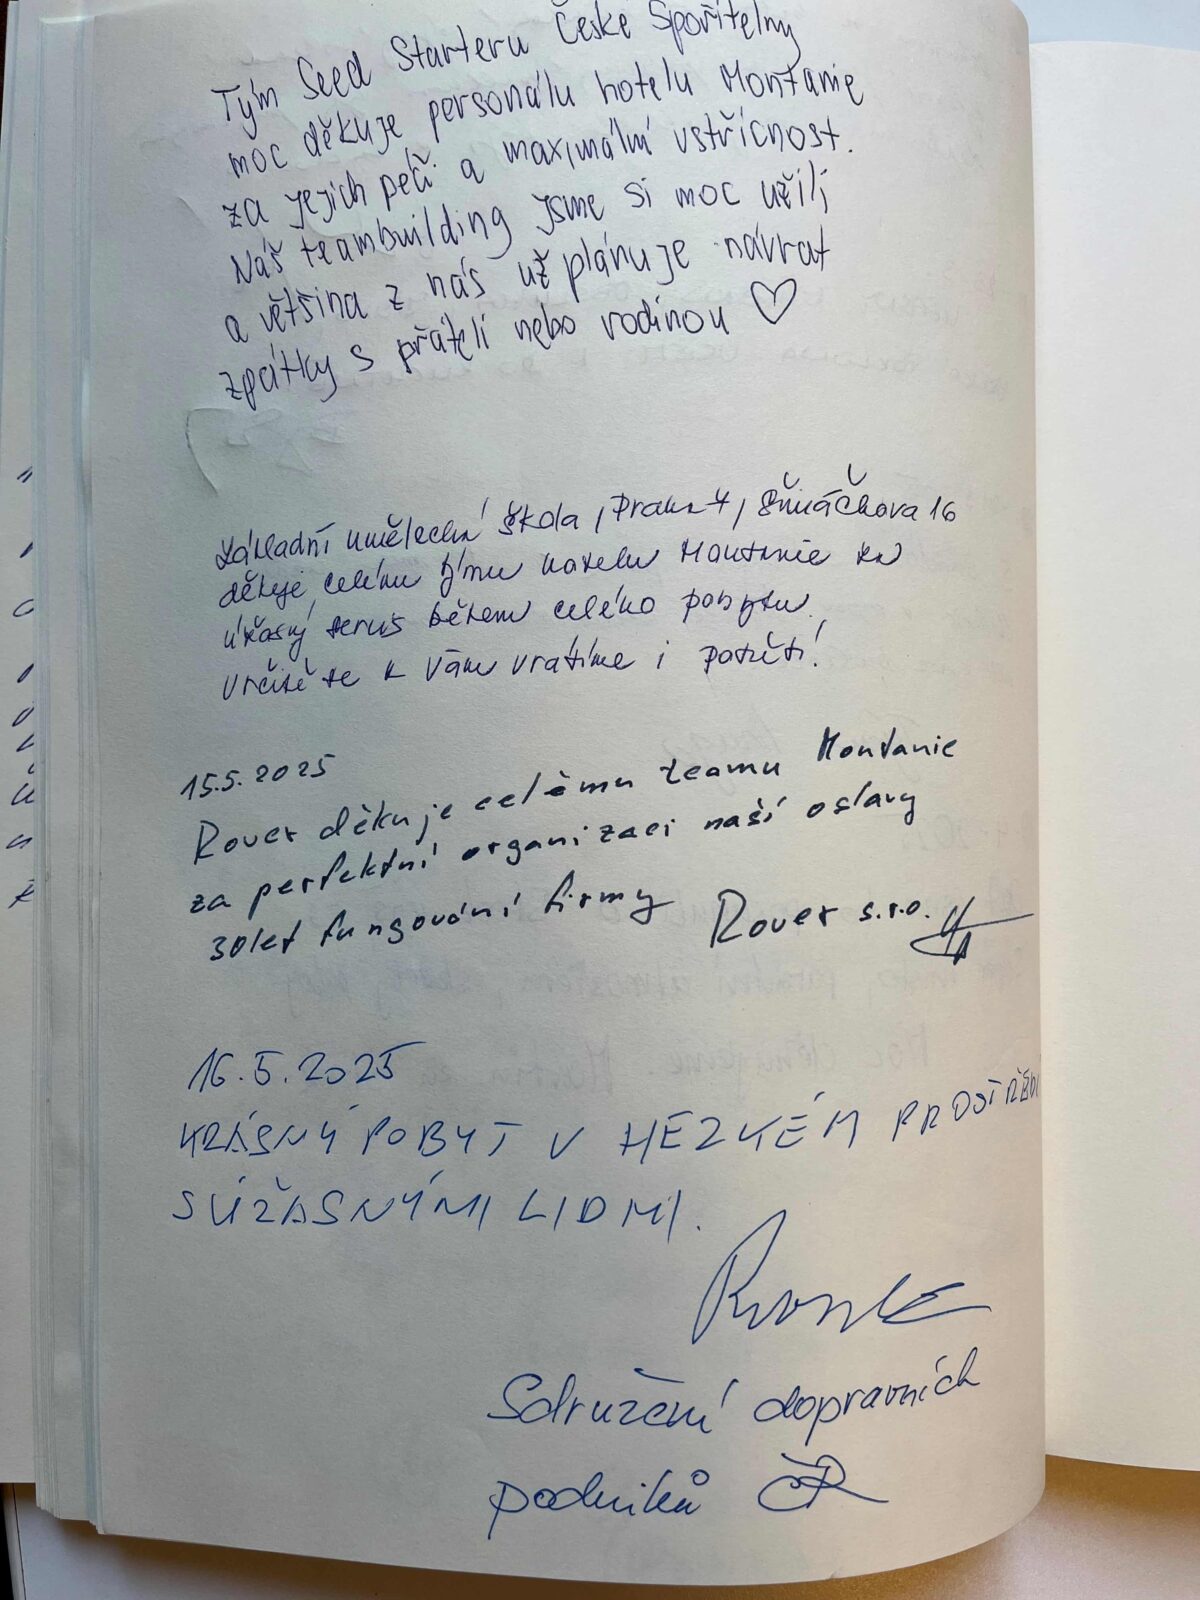 Tým Seed Starteru České Spořitelny
moc děkuje personálu hotelu Montanie
za jejich péči a maximální vstřícnost.
Náš teambuilding jsme si moc užili
a většina z nás už plánuje návrat
zpátky s přáteli nebo rodinou ♡
Základní umělecká škola, Praha 4, Šimáčkova 16
děkuje celému týmu hotelu Montanie za
úžasný servis během celého pobytu.
Určitě se k Vám vrátíme i potřetí!
15.5.2025
Rover děkuje celému teamu Montanie
za perfektní organizaci naší oslavy
30 let fungování firmy Rover s.r.o.
16.5.2025
KRÁSNÝ POBYT V HEZKÉM PROSTŘEDÍ
S ÚŽASNÝMI LIDMI.
Sdružení dopravních
podniků ČR